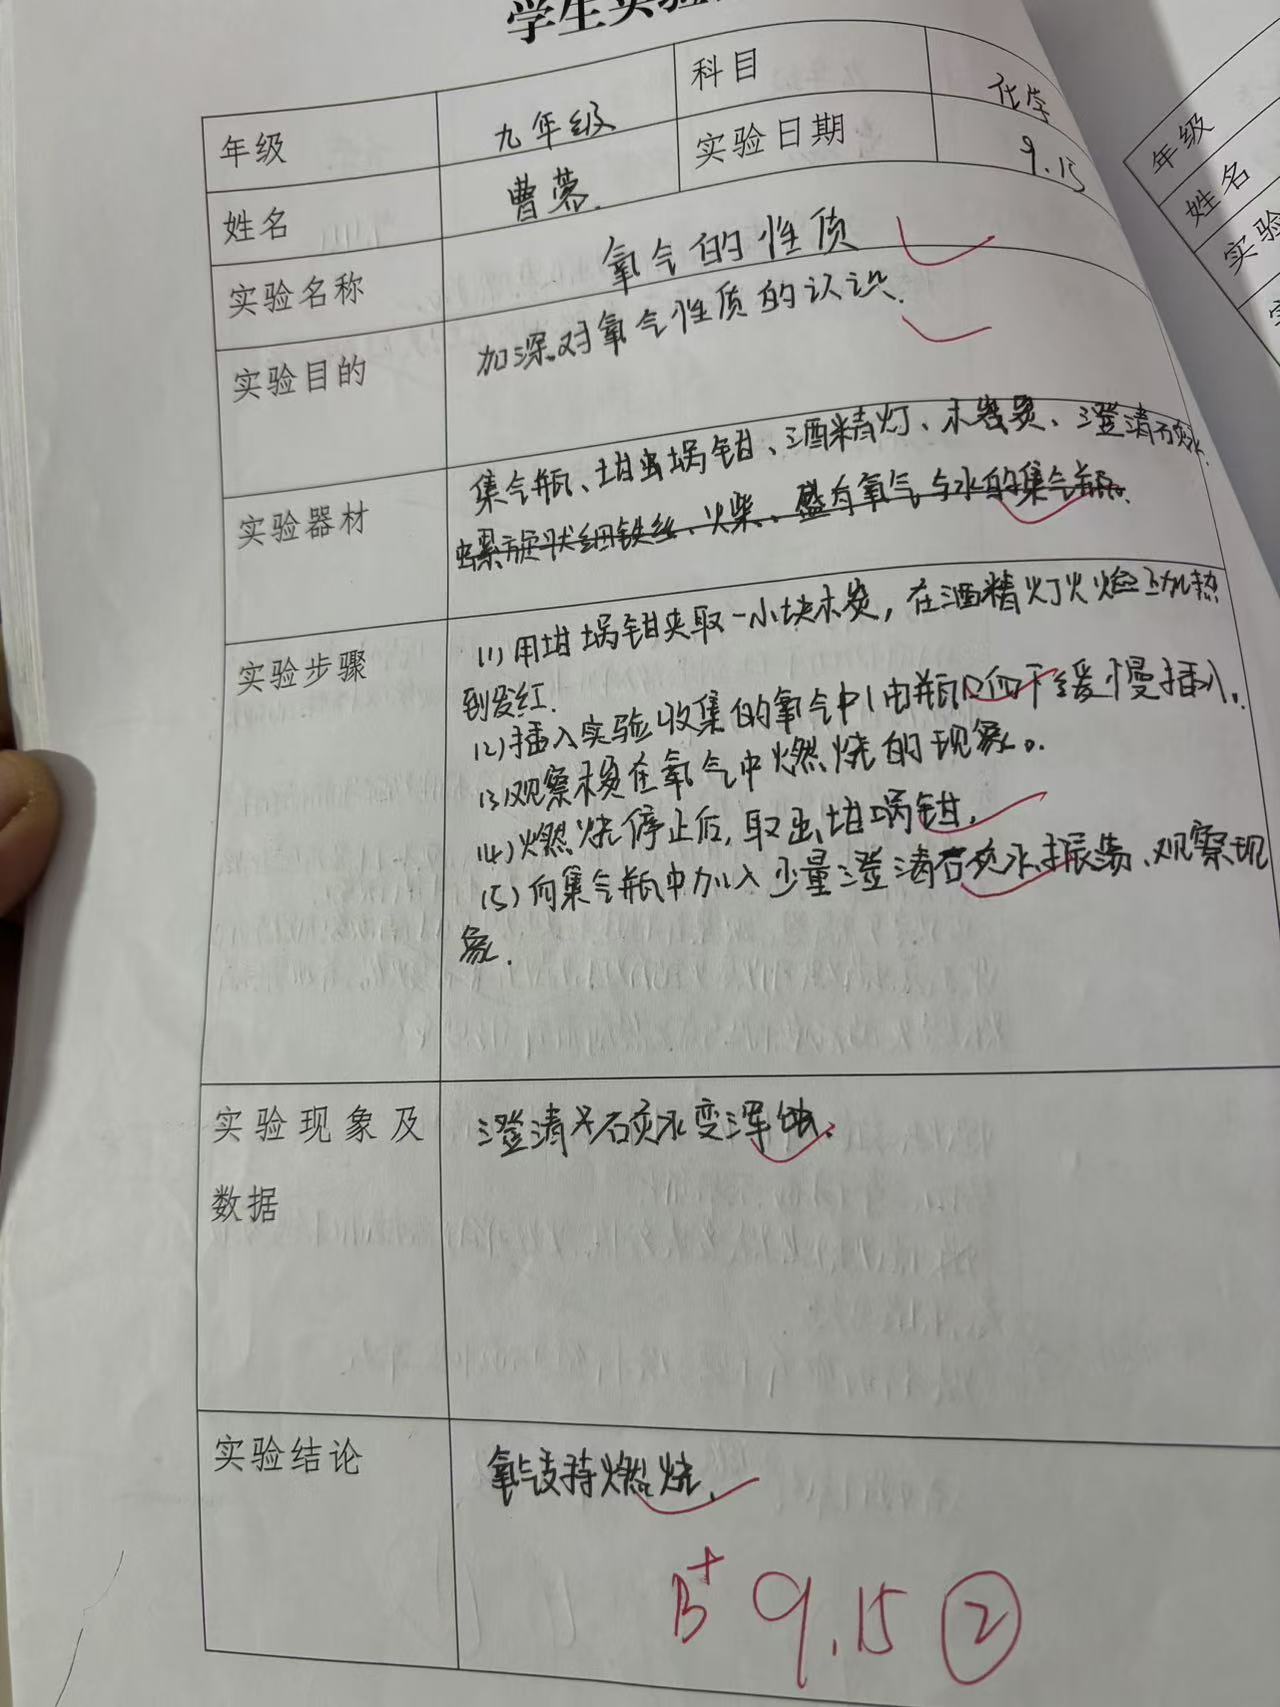 学生实验
年级 九年级 科目 化学
姓名 曹蓉. 实验日期 9.15
实验名称 氧气的性质
实验目的 加深对氧气性质的认识.
实验器材 集气瓶、坩埚钳、酒精灯、木炭、澄清石灰水.
螺旋状细铁丝、火柴、盛有氧气与水的集气瓶.
实验步骤 (1)用坩埚钳夹取一小块木炭，在酒精灯火焰上加热
到发红.
(2)插入实验收集的氧气中(由瓶口向下缓慢插入.
(3)观察木炭在氧气中燃烧的现象。.
(4)燃烧停止后,取出坩埚钳.
(5)向集气瓶中加入少量澄清石灰水振荡、观察现
象.
实验现象及 澄清石灰水变浑浊.
数据
实验结论 氧气支持燃烧.
B+ 9.15 2
年级
姓名
实验